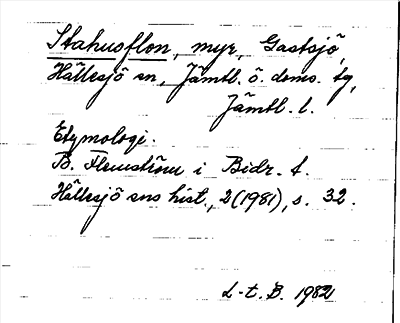 Stahusflon, myr, Gastsjö,
Hällesjö sn, Jämtl. ö. doms. tg,
Jämtl. l.
Etymologi.
B. Flemström i Bidr. t.
Hällesjö sns hist., 2 (1981), s. 32.
L-t. B. 1982